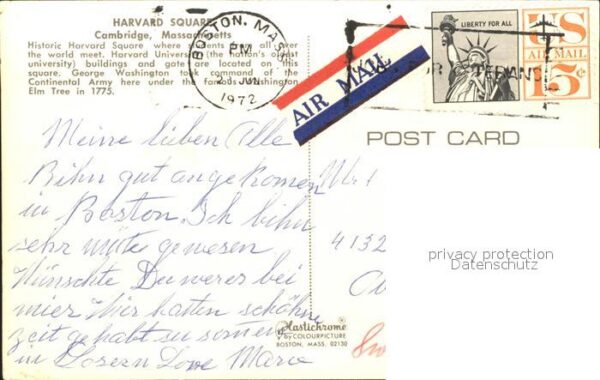 HARVARD SQUARE
Cambridge, Massachusetts
Historic Harvard Square where students from all over
the world meet. Harvard University (the nation's oldest
university) buildings and gates are located on this
square. George Washington took command of the
Continental Army here under the famous Washington
Elm Tree in 1775.
BOSTON, MASS
PM
2 JUN
1972
AIR MAIL
LIBERTY FOR ALL
US
AIR MAIL
15¢
POST CARD
Meine lieben Alle
Bihn gut angekomen
in Boston. Ich bihn
sehr müte gewesen
Wünschte Du werer bei
mier Wir hatten schöhne
zeit gehabt zu somen
in Love
4132
privacy protection
Datenschutz
Plastichrome®
by COLOURPICTURE
BOSTON, MASS. 02130